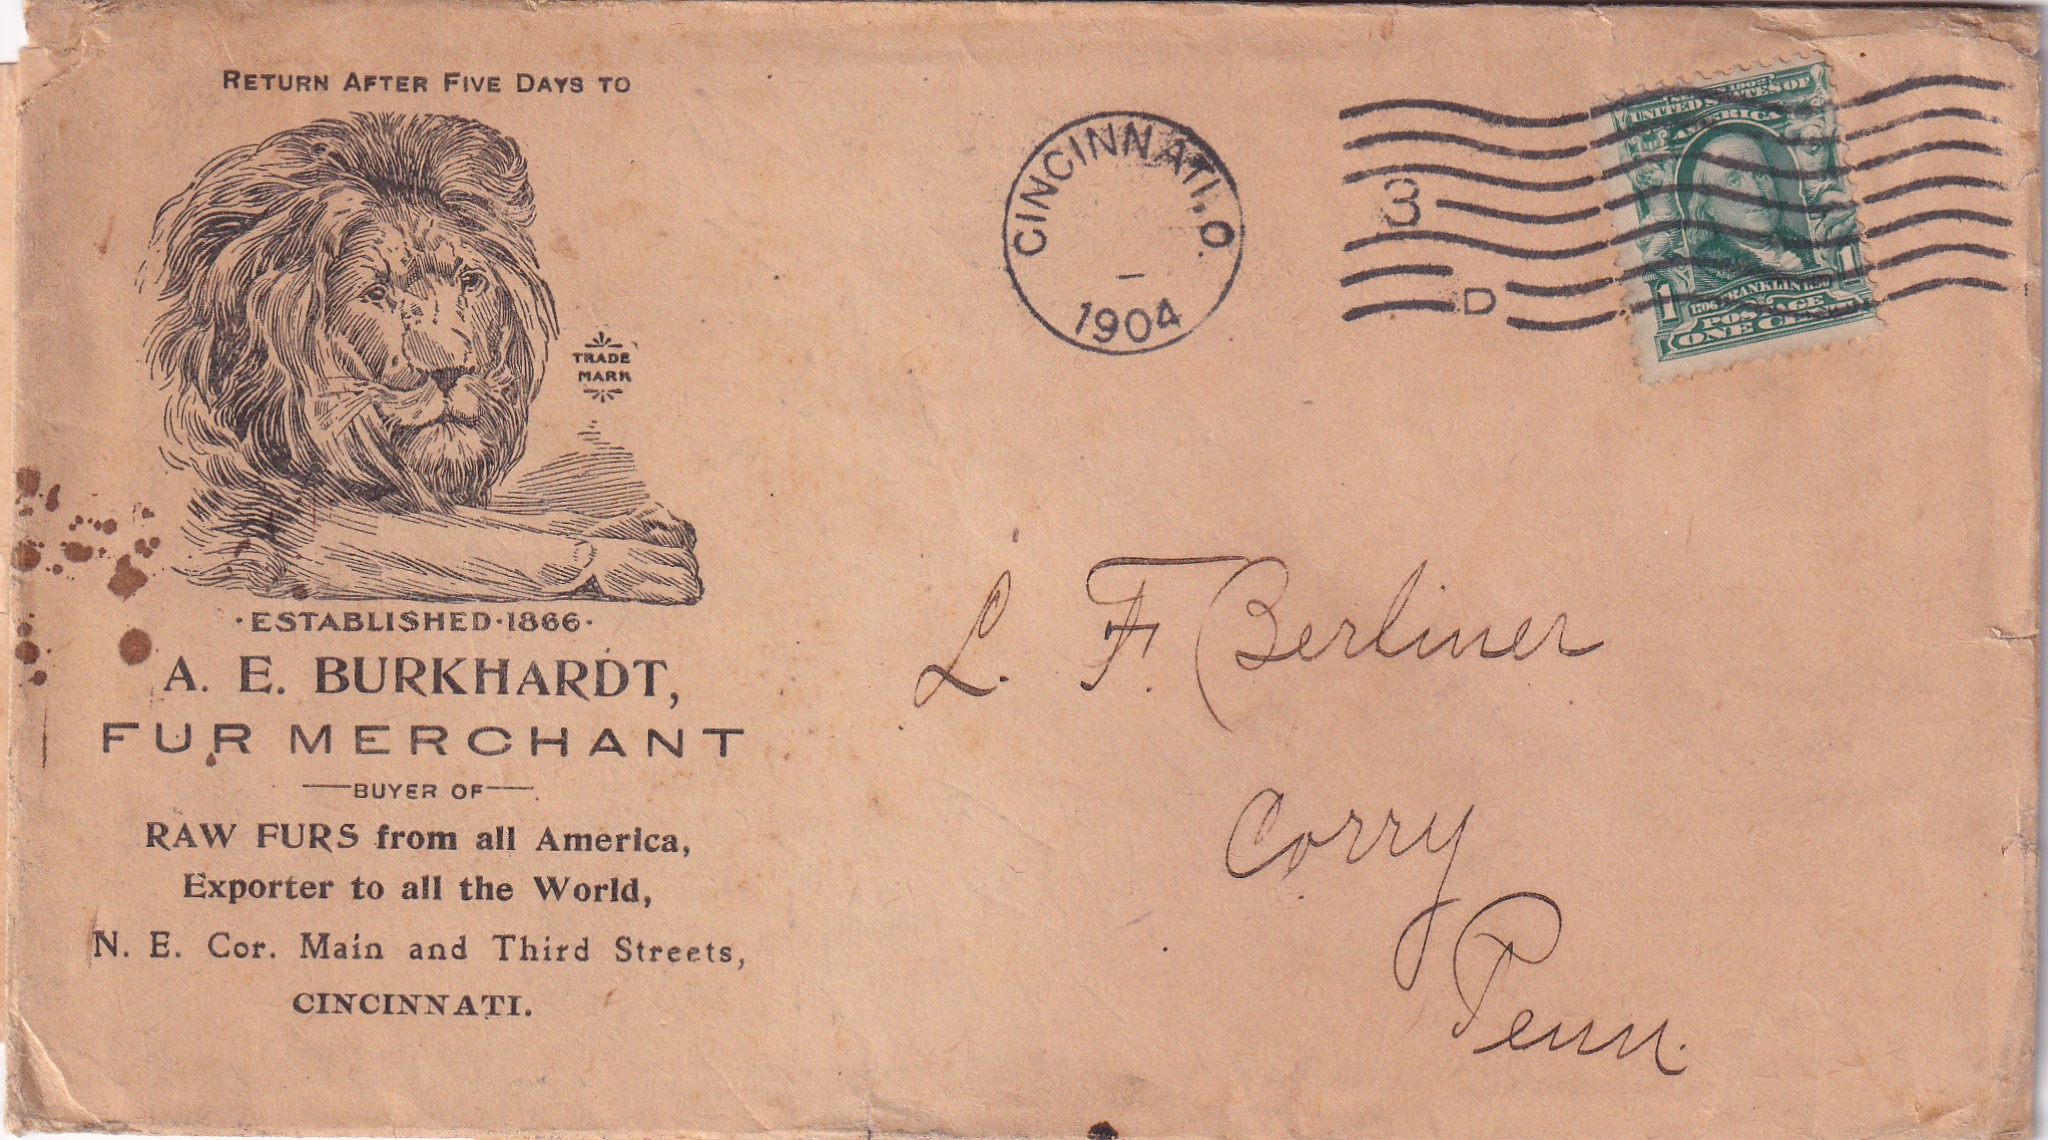 RETURN AFTER FIVE DAYS TO
TRADE
MARK
·ESTABLISHED·1866·
A. E. BURKHARDT,
FUR MERCHANT
BUYER OF
RAW FURS from all America,
Exporter to all the World,
N. E. Cor. Main and Third Streets,
CINCINNATI.
CINCINNATI, O.
1904
3
D
SERIES 1902
UNITED STATES OF
AMERICA
1 1
1706 FRANKLIN 1790
POSTAGE
ONE CENT
L. F. Berliner
Corry
Penn.